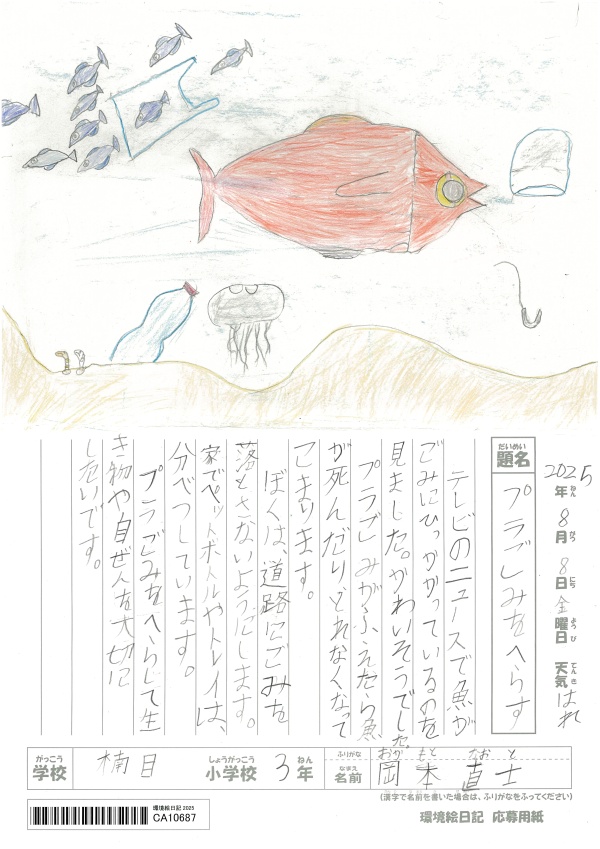 2025年8月8日金曜日 天気はれ
ねん がつ にち ようび てんき
だいめい
題名
プラごみをへらす
テレビのニュースで魚が
ごみにひっかかっているのを
見ました。かわいそうでした。
プラごみがふえたら魚
が死んだりとれなくなって
こまります。
ぼくは、道路にごみを
落とさないようにします。
家でペットボトルやトレイは、
分べつしています。
プラごみをへらして生
き物や自ぜんを大切に
したいです。
がっこう
学校
楠目
しょうがっこう
小学校
3
ねん
年
ふりがな
おか もと なお と
なまえ
名前
岡本直士
(漢字で名前を書いた場合は、ふりがなをふってください)
環境絵日記 2025
CA10687
環境絵日記 応募用紙